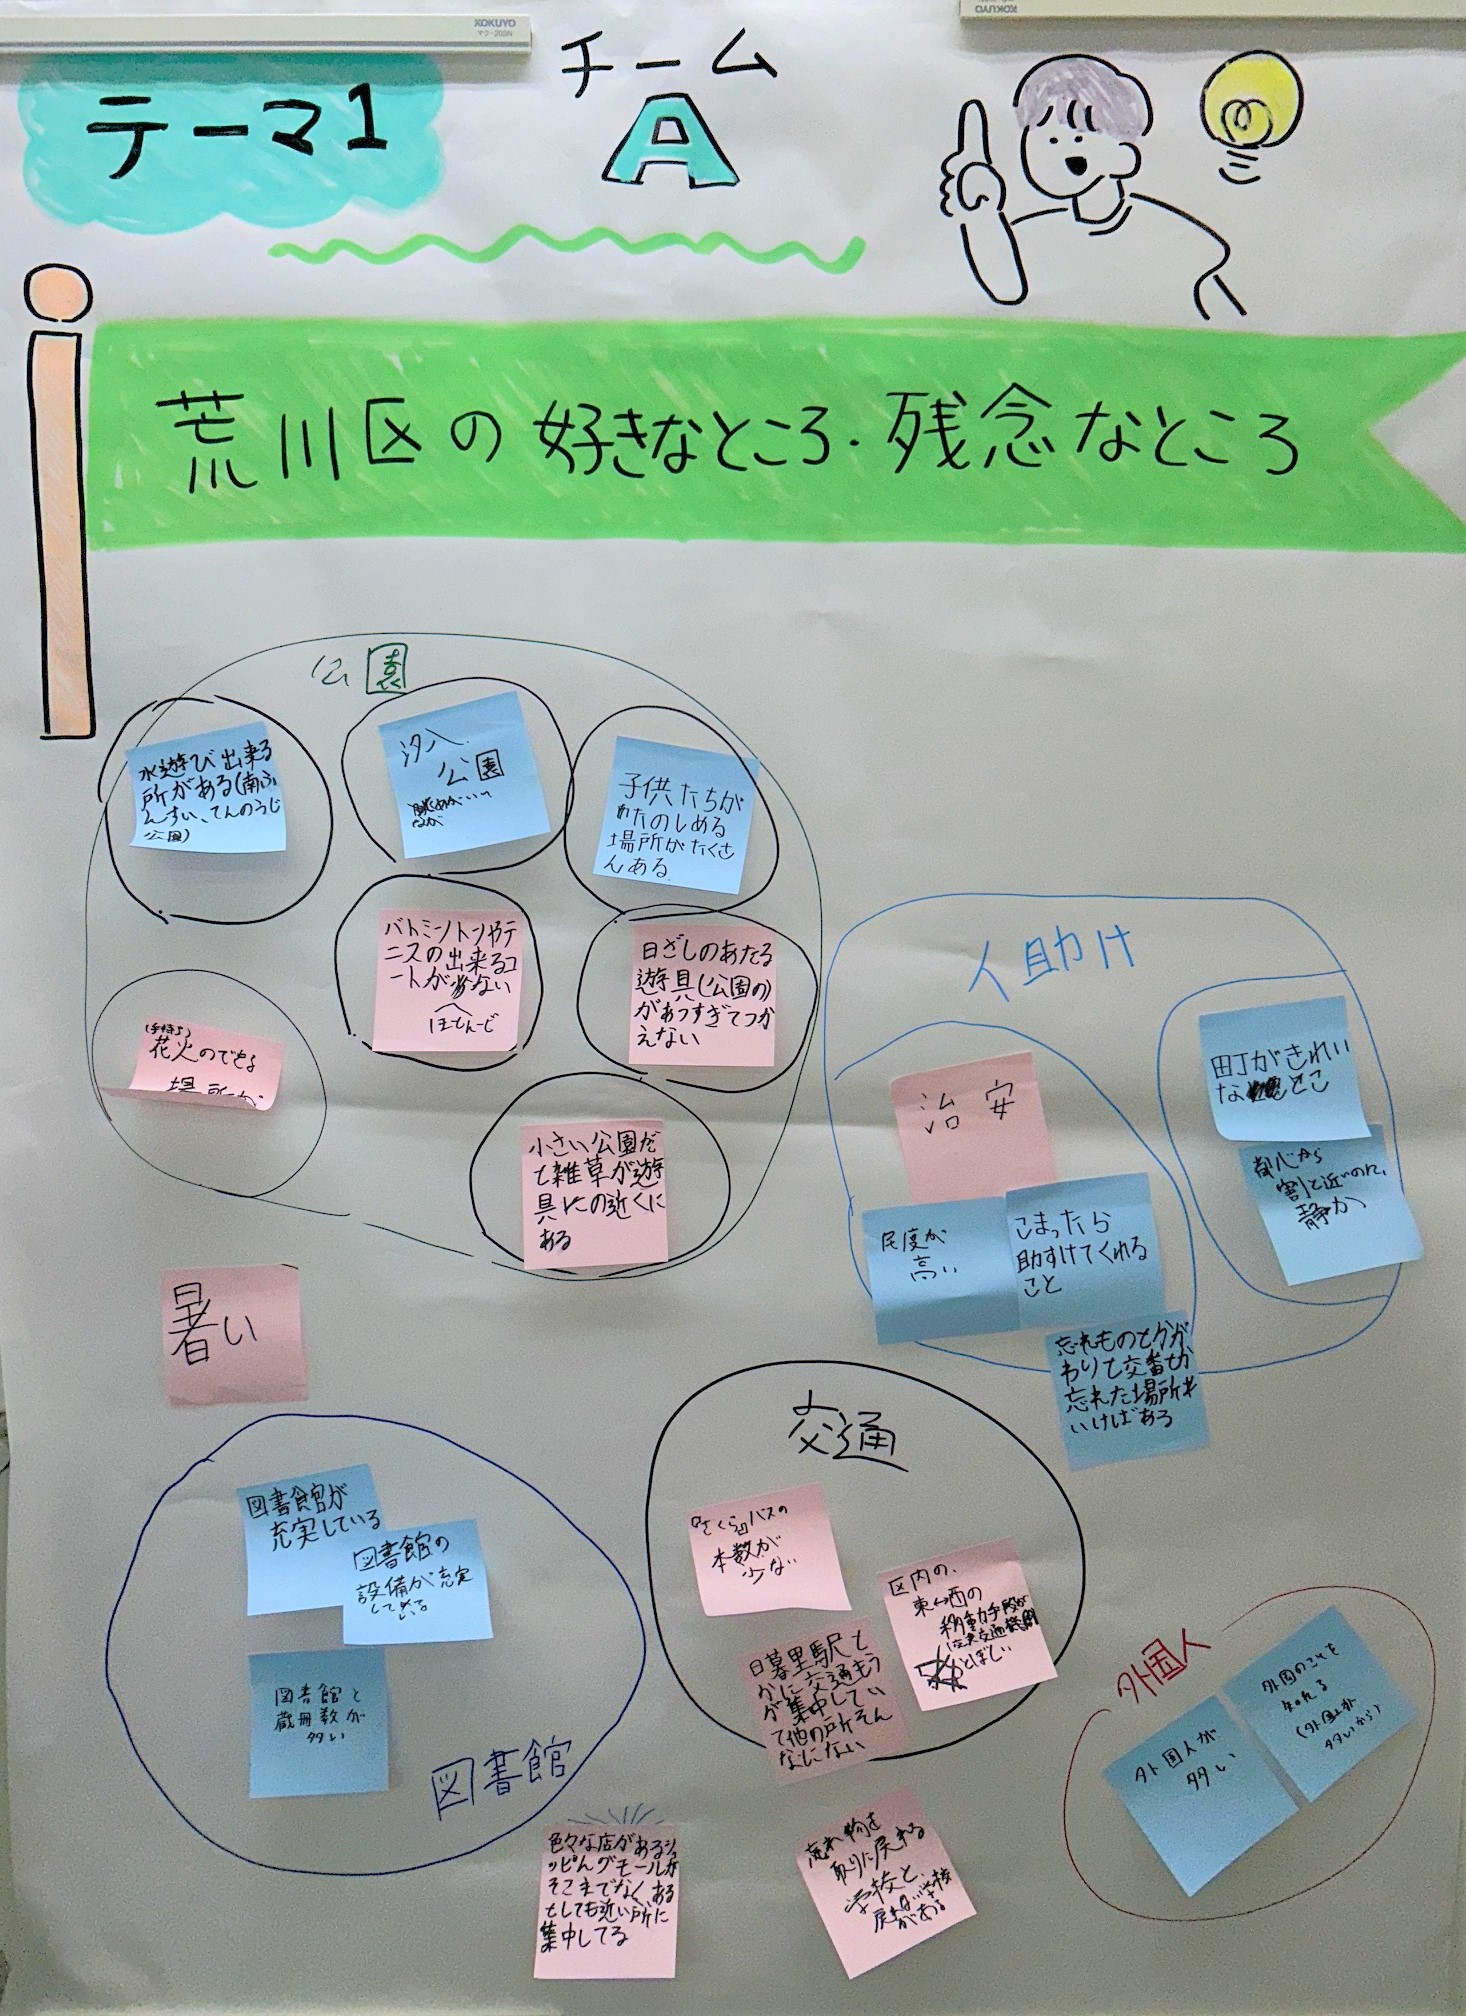 KOKUYO
マク-203N
KOKUYO
テーマ1
チーム
A
荒川区の好きなところ・残念なところ
公園
水遊び出来る
所がある(南ふ
んすい、てんのうじ
公園)
汐入
公園
眺めがいい
子供たちが
たのしめる
場所がたくさ
んある
バトミントンやテ
ニスの出来るコ
ートが少ない
ほとんーど
日ざしのあたる
遊具(公園の)
があつすぎてつか
えない
(手持ち)
花火のできる
場所が
小さい公園だ
と雑草が遊
具の近くに
ある
人助け
治安
町がきれい
なとこ
都心から
割と近いのに、
静か
民度が
高い
こまったら
助すけてくれる
こと
忘れものとかが
わりと交番とか
忘れた場所に
いけばある
暑い
図書館が
充実している
図書館の
設備が充実
している
図書館と
蔵冊数が
多い
図書館
交通
『さくら』バスの
本数が
少ない
区内の、
東↔西の
移動手段が
とぼしい
日暮里駅と
かに交通もう
が集中してい
て他の所そん
なにない
外国人
外国人が
多い
外国のことを
知れる
(外国人が
多いから)
色々な店があるショ
ッピングモールが
そこまでなく、ある
としても近い所に
集中してる
忘れ物を
取りに戻れる
学校と、
戻れない学校
がある